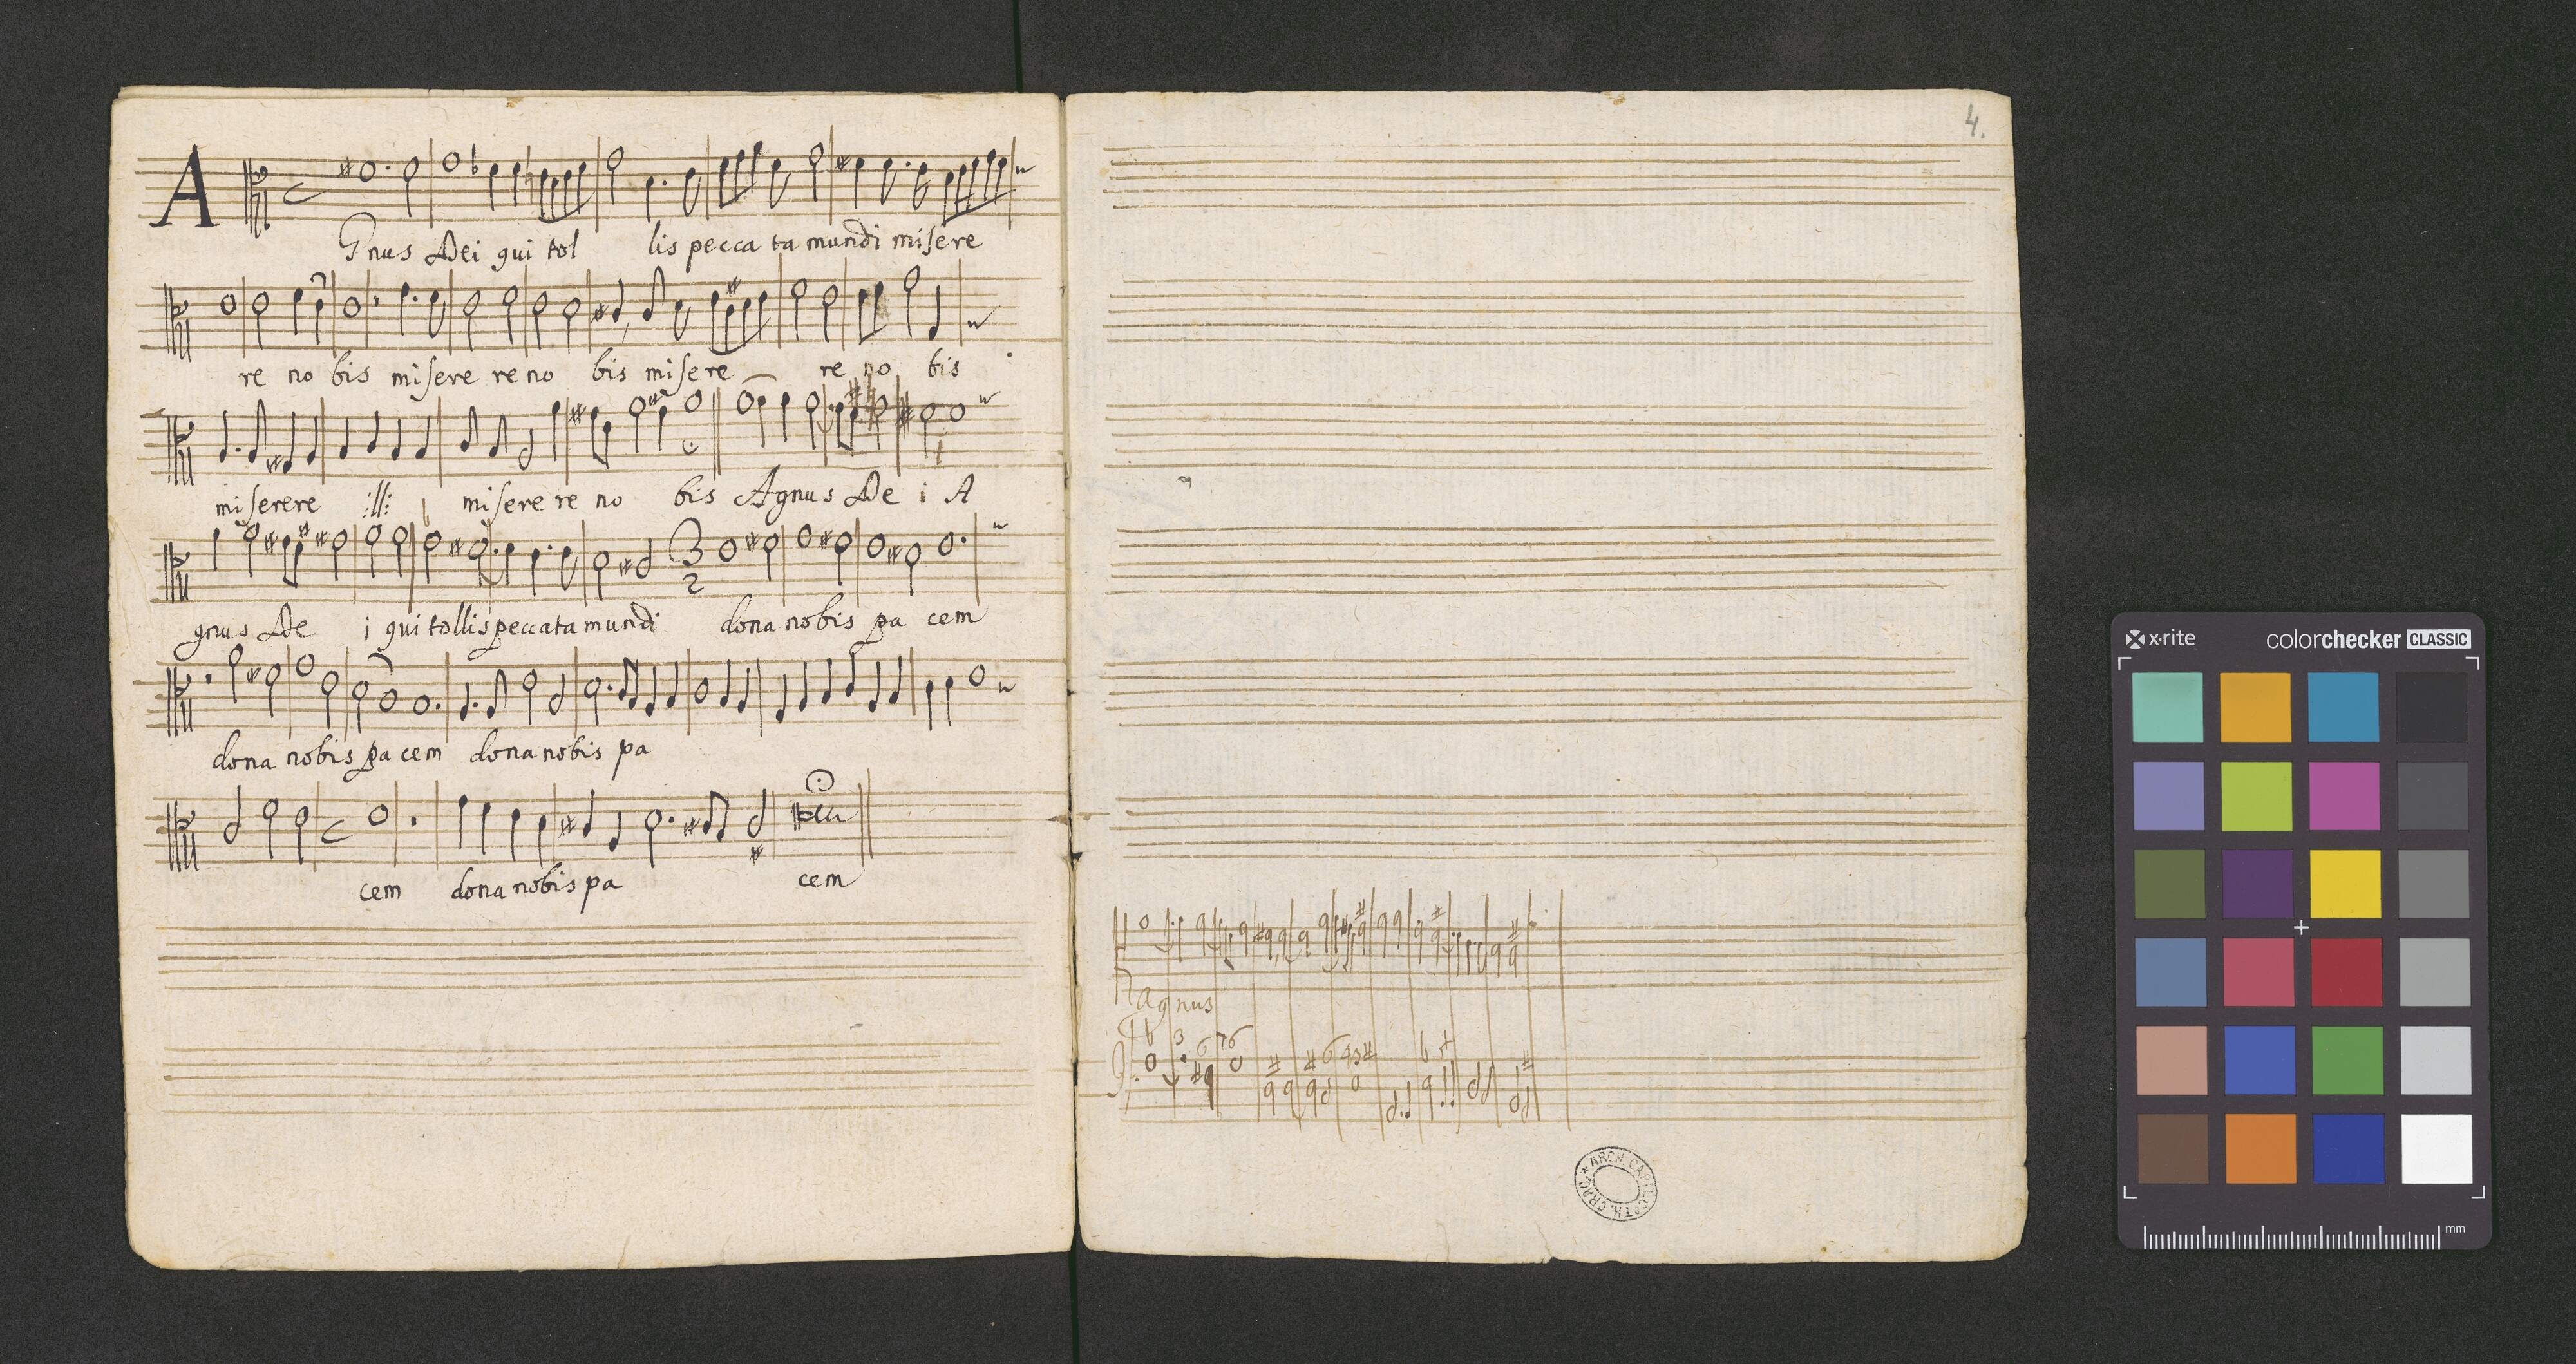 A
Gnus Dei qui tol lis pecca ta mundi misere
re no bis misere re no bis misere re no bis
miserere :ll: misere re no bis Agnus De i A
gnus De i qui tollis peccata mundi dona nobis pa cem
3
2
dona nobis pa cem dona nobis pa
cem dona nobis pa cem
4.
agnus
b 3 6 76 6 43
ARCH. CAPIT. CATH. CRAC.
x·rite colorchecker CLASSIC
mm